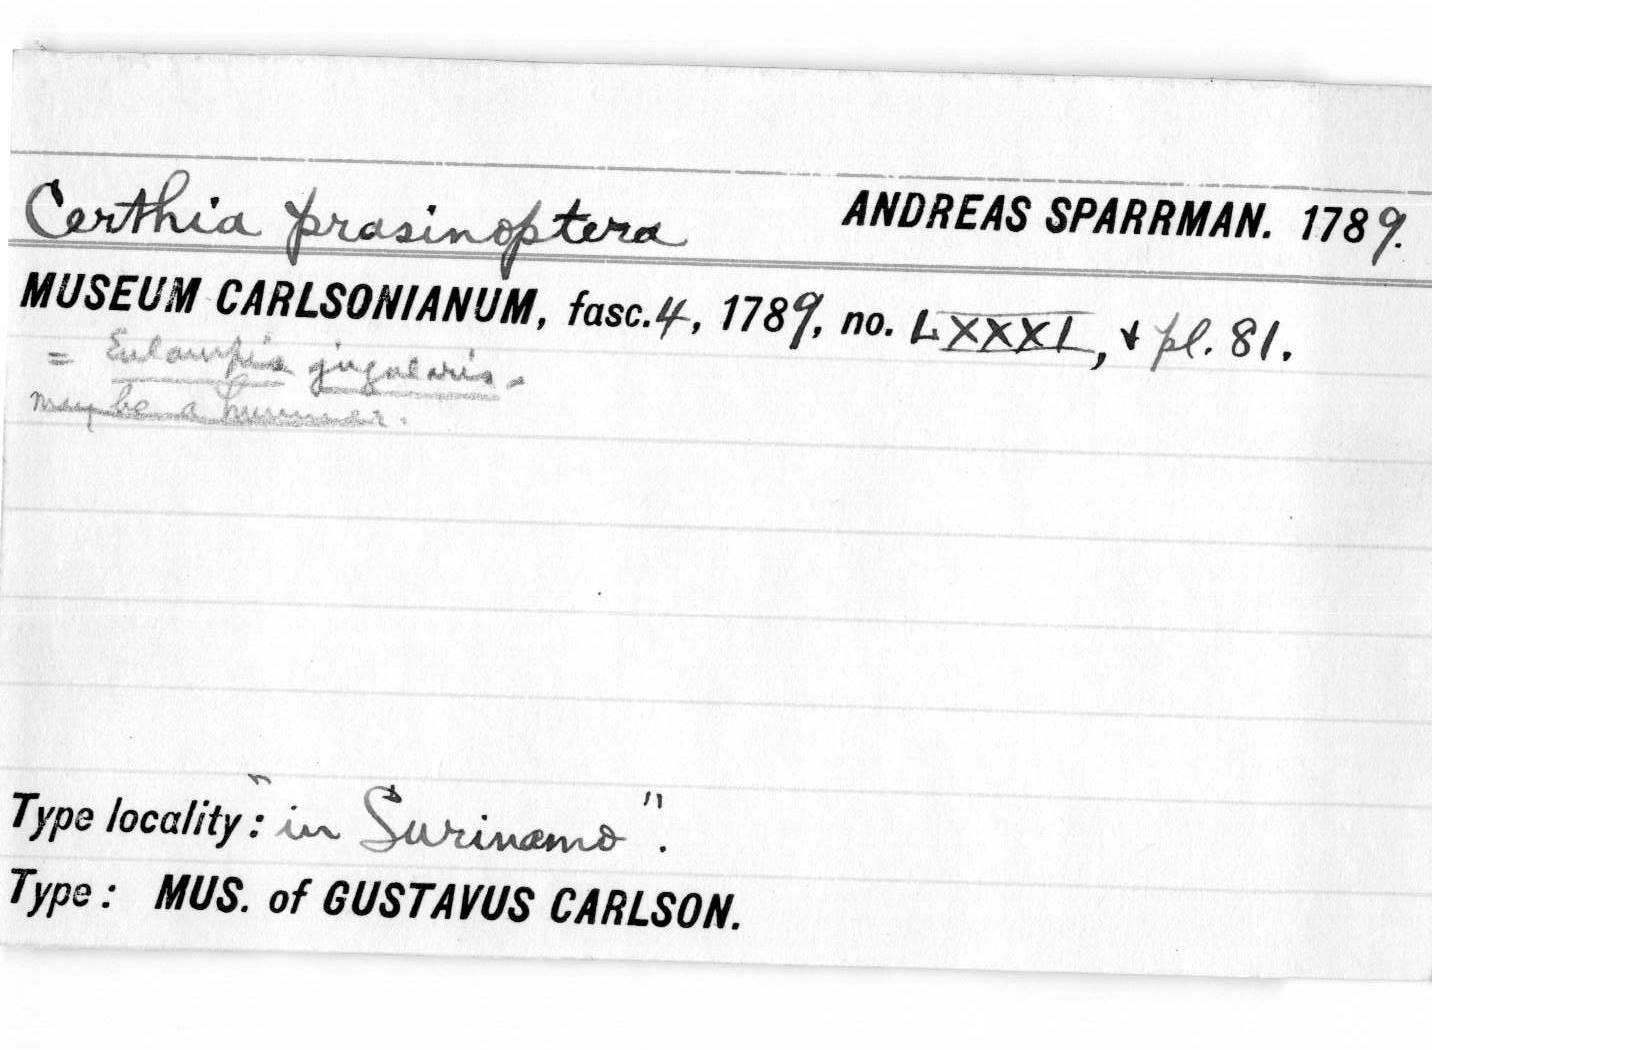 Certhia prasinoptera ANDREAS SPARRMAN. 1789.
MUSEUM CARLSONIANUM, fasc. 4, 1789, no. LXXXI, + pl. 81.
= Eulampis jugularis.
may be a hummer.
Type locality: "in Surinamo".
Type: MUS. of GUSTAVUS CARLSON.